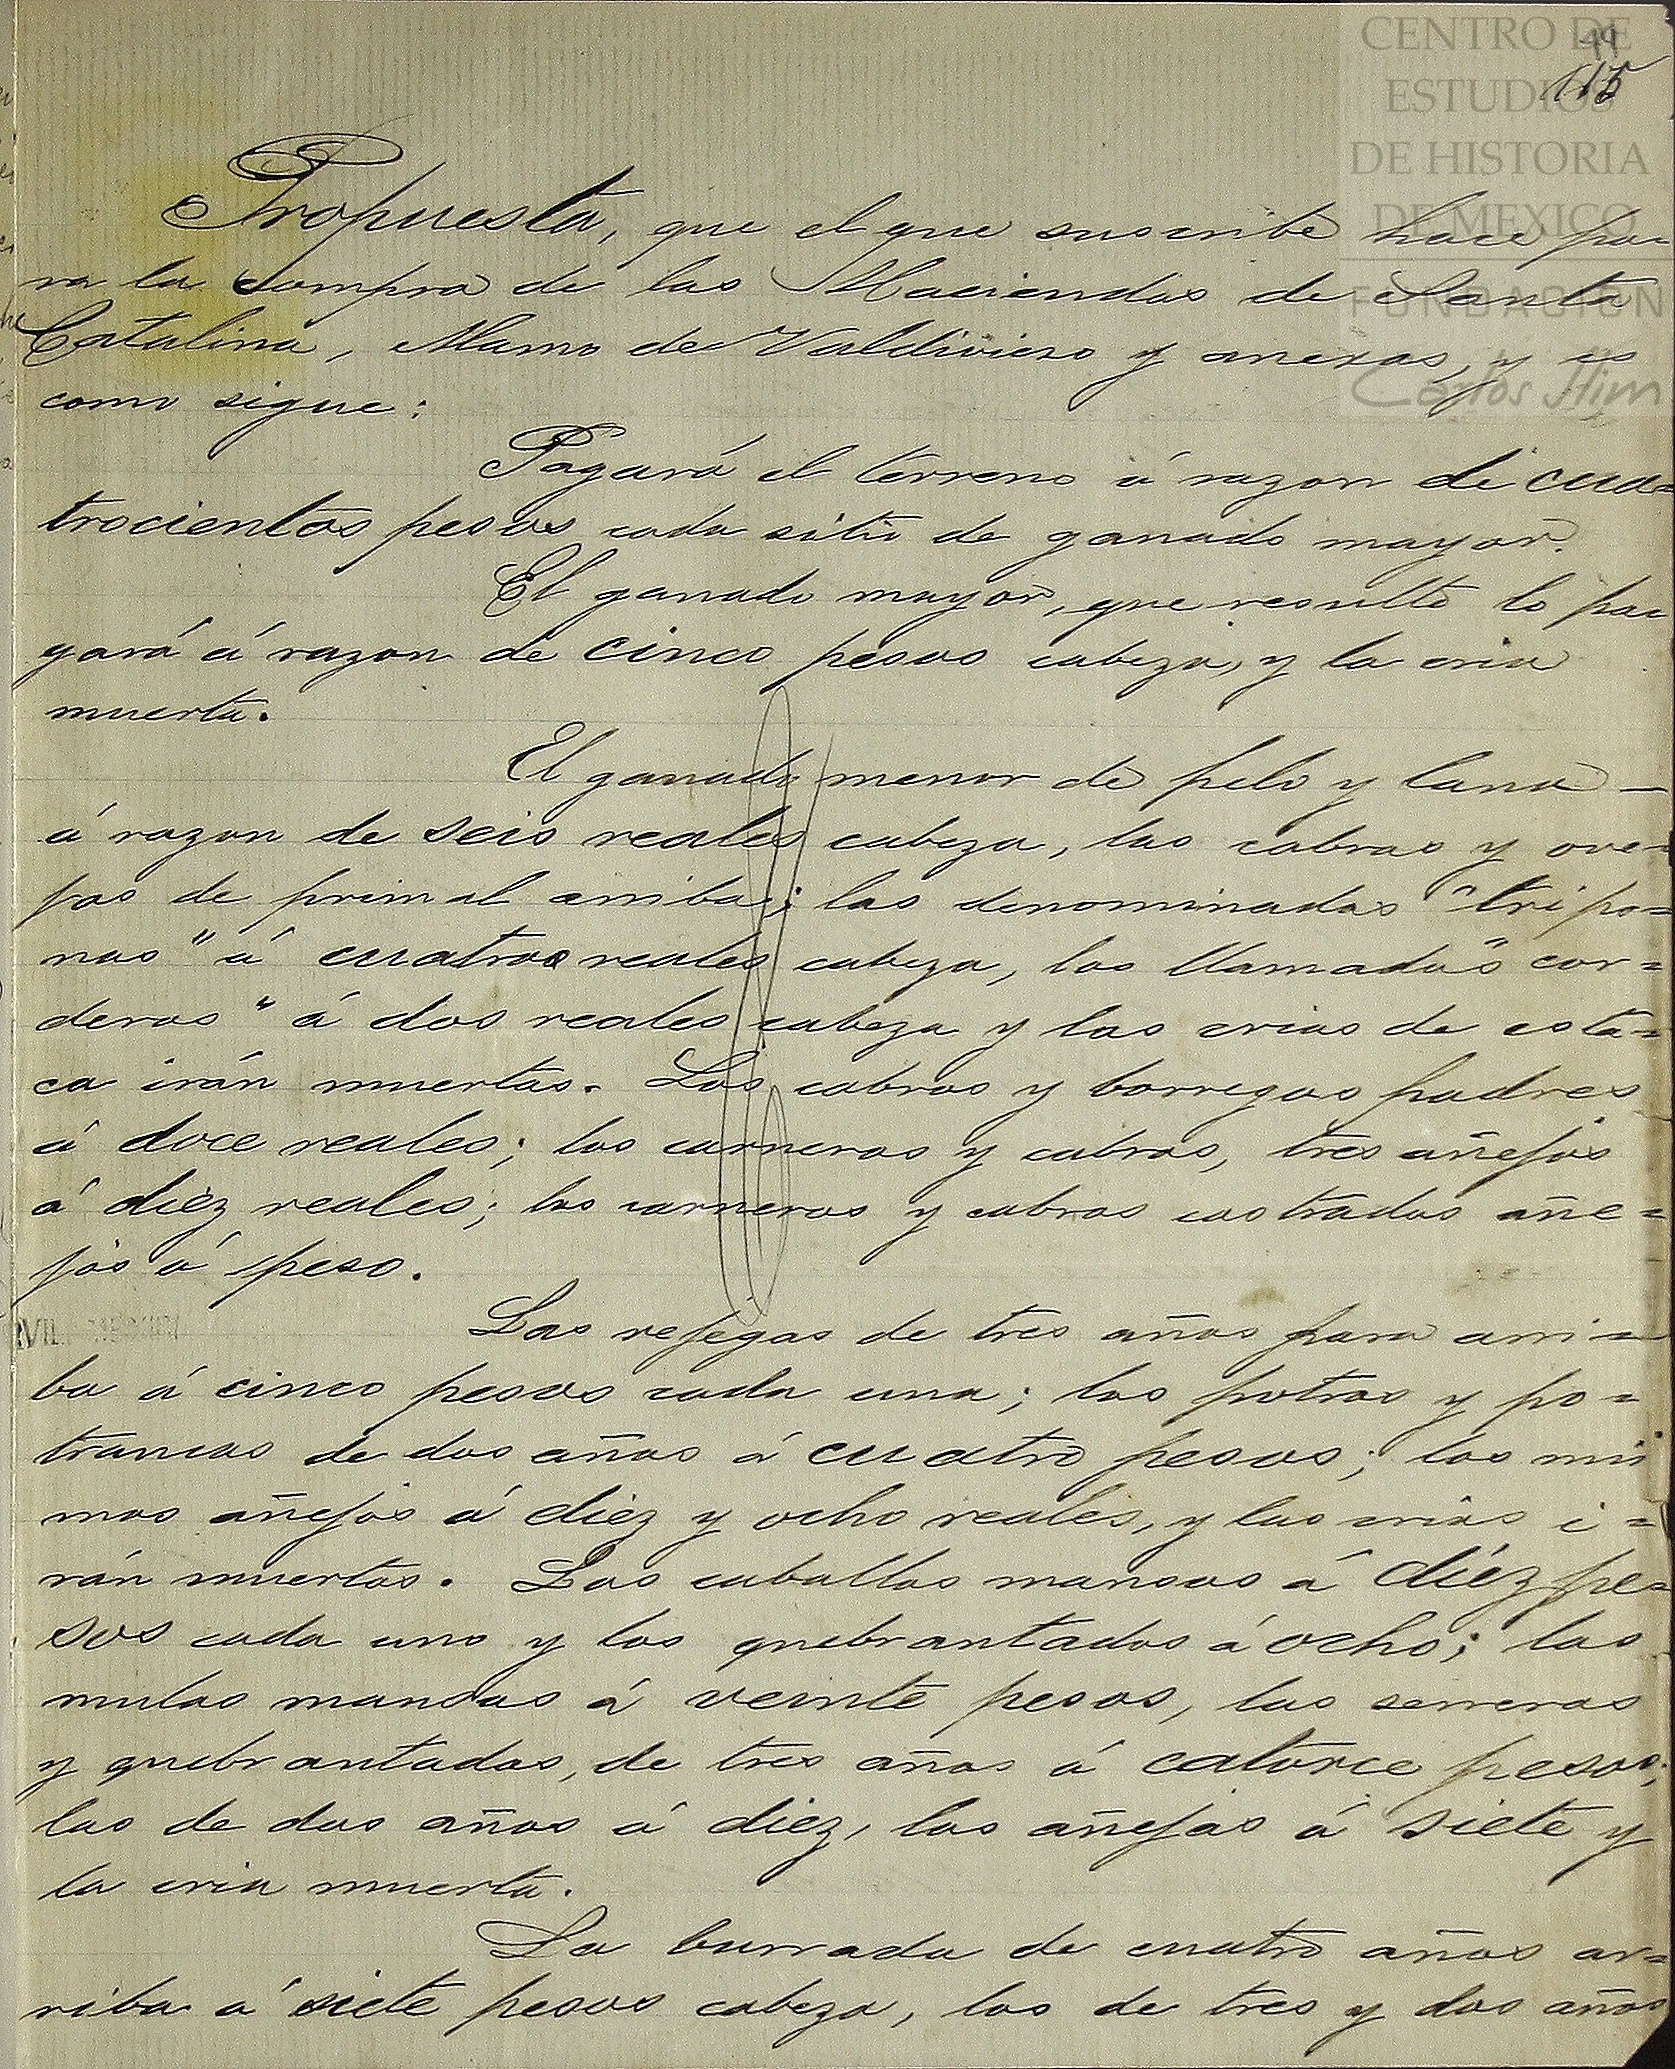 CENTRO DE
ESTUDIOS
DE HISTORIA
DE MEXICO
FUNDACIÓN
Carlos Slim
115
Propuesta, que el que suscribe hace pa-
ra la compra de las Haciendas de Santa
Catalina, Alamo de Valdivieso y anexas, y es
como sigue:
Pagará el terreno á razon de cua=
trocientos pesos cada sitio de ganado mayor.
El ganado mayor, que resulte lo pa-
gará á razon de cinco pesos cabeza, y la cria
muerta.
El ganado menor de pelo y lana —
á razon de seis reales cabeza, las cabras y ove-
jas de primal arriba; las denominadas "tripo=
nas" á cuatro reales cabeza, los llamados "cor=
deros" á dos reales cabeza y las crias de esta=
ca irán muertas. Los cabros y borregos padres
á doce reales; los carneros y cabros, tres añejos
á diez reales; los carneros y cabros castrados añe=
jos á peso.
Las yeguas de tres años para arri=
ba á cinco pesos cada una; los potros y po=
trancas de dos años á cuatro pesos; los mis
mos añejos á diez y ocho reales, y las crias i=
rán muertas. Los caballos mansos á diéz pe=
sos cada uno y los quebrantados á ocho; las
mulas mansas á veinte pesos, las serreras
y quebrantadas, de tres años á catorce pesos;
las de dos años á diez, las añejas á siete y
la cria muerta.
La burrada de cuatro años ar=
riba á siete pesos cabeza, los de tres y dos años